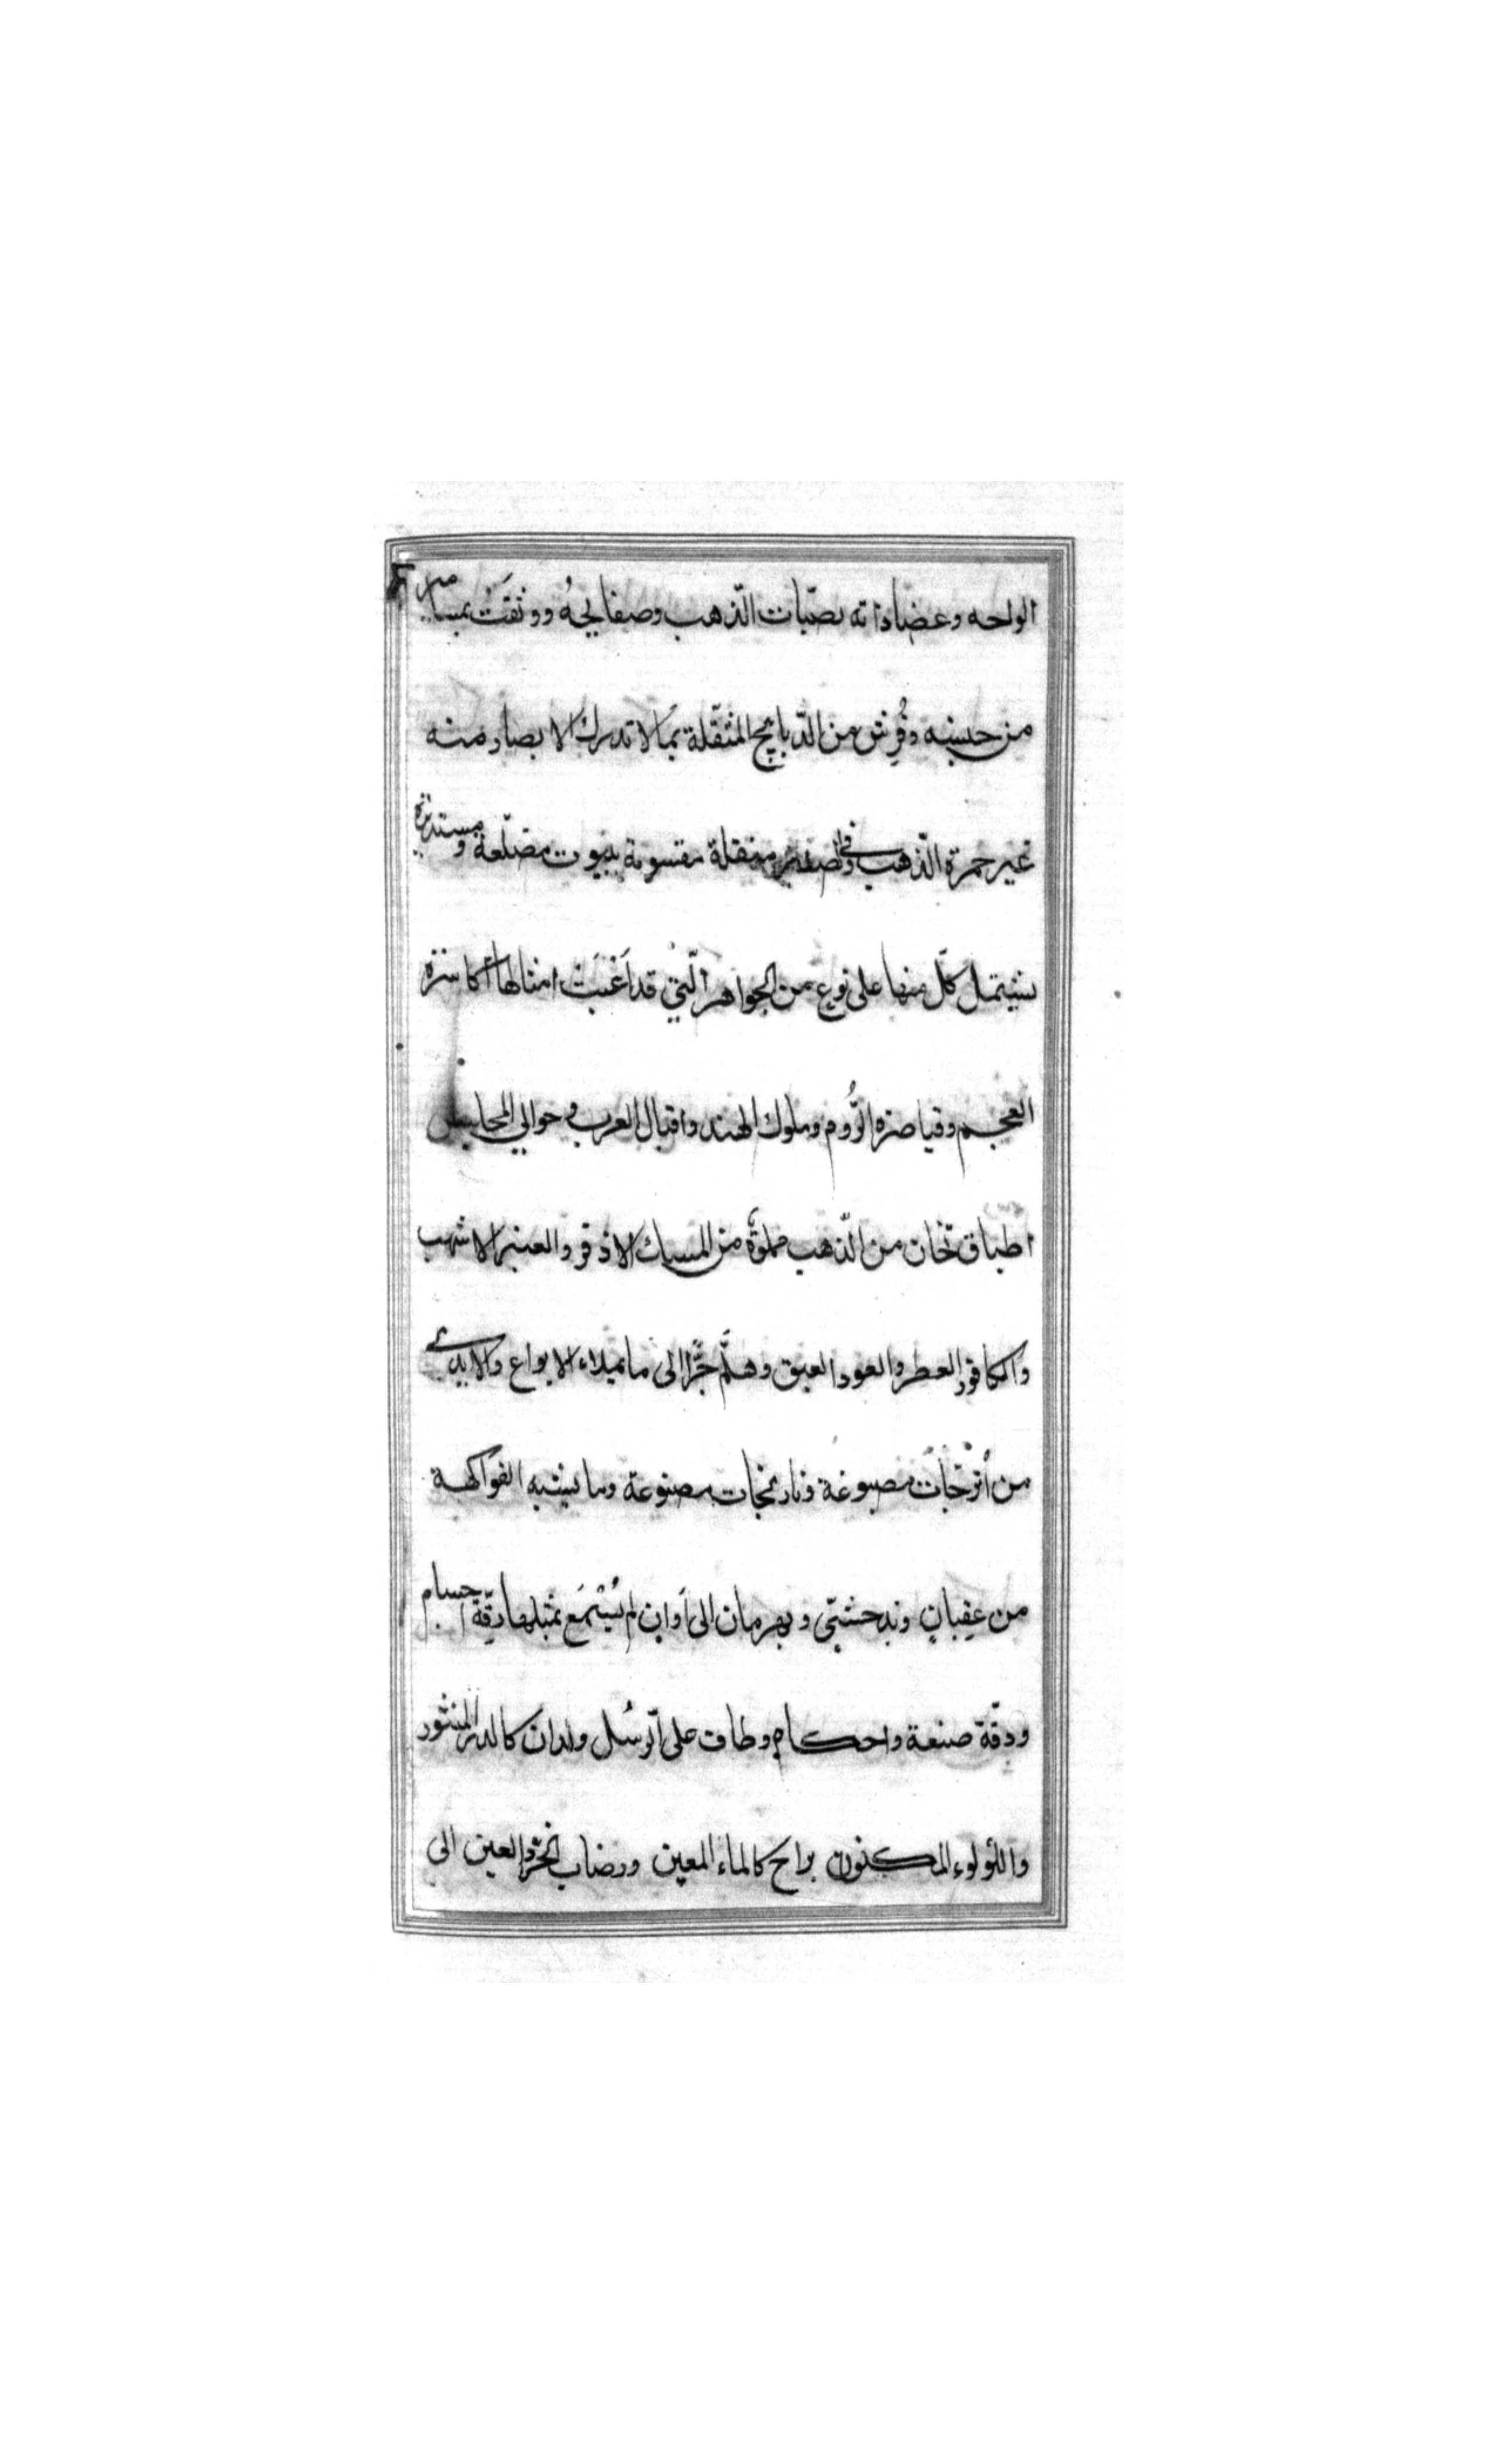 الواحه وعضاداته بضبات الذهب وصفايحهُ ووثقَتْ بمسامير
من جنسه وفُرِش من الدّبابيج المثقّلة بما لا تدرك الابصار منه
غير حمرة الذّهب وفى منقلة مقسومة ببيوت مضلّعة ومستديرة
يشتمل كلّ منها على نوع من الجواهر الّتي قد اَعْيَتْ امثالها اكاسرة
العجم وقياصرة الرُّوم وملوك الهند واقيال العرب وحوالي المجلس
اطباق ثخان من الّذهب مملوّة من المسك الاذفر والعنبر الاشهب
والكافور العطر والعود العبق وهلَّم جَّرا الى ما يملاء الابواع والايدى
من أترجّات مصبوغة ونارنجات مصنوعة وما يشبه الفواكهة
من عِقيان وبدخشىّ وبهرمان الى اَوانٍ لم يُسْمَع بمثلها رقّة اجسام
ودقّة صنعة واحكام وطاف على الرسُل ولدان كالدر المنثور
واللؤلوء المكنون براح كالماء المعين ورضاب الخرّد العين الى